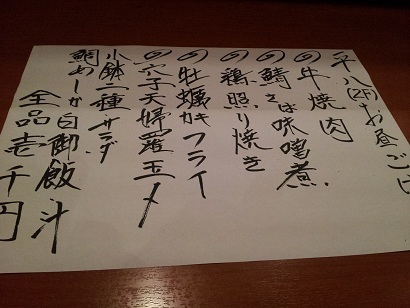 平八(2F)お昼ごは
の牛焼肉
の鯖さば味噌煮
の鶏照り焼き
の牡蠣かキフライ
の穴子天婦羅玉〆
小鉢二種サラダ
鯛めしか白御飯汁
全品壱千円